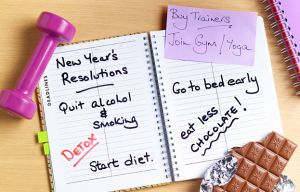 New Year's
Resolutions
Quit alcohol
&
Smoking
DETOX
Start diet.
DEADLINES
Buy Trainers,
Join Gym / Yoga
Go to bed early
eat less
CHOCOLATE!